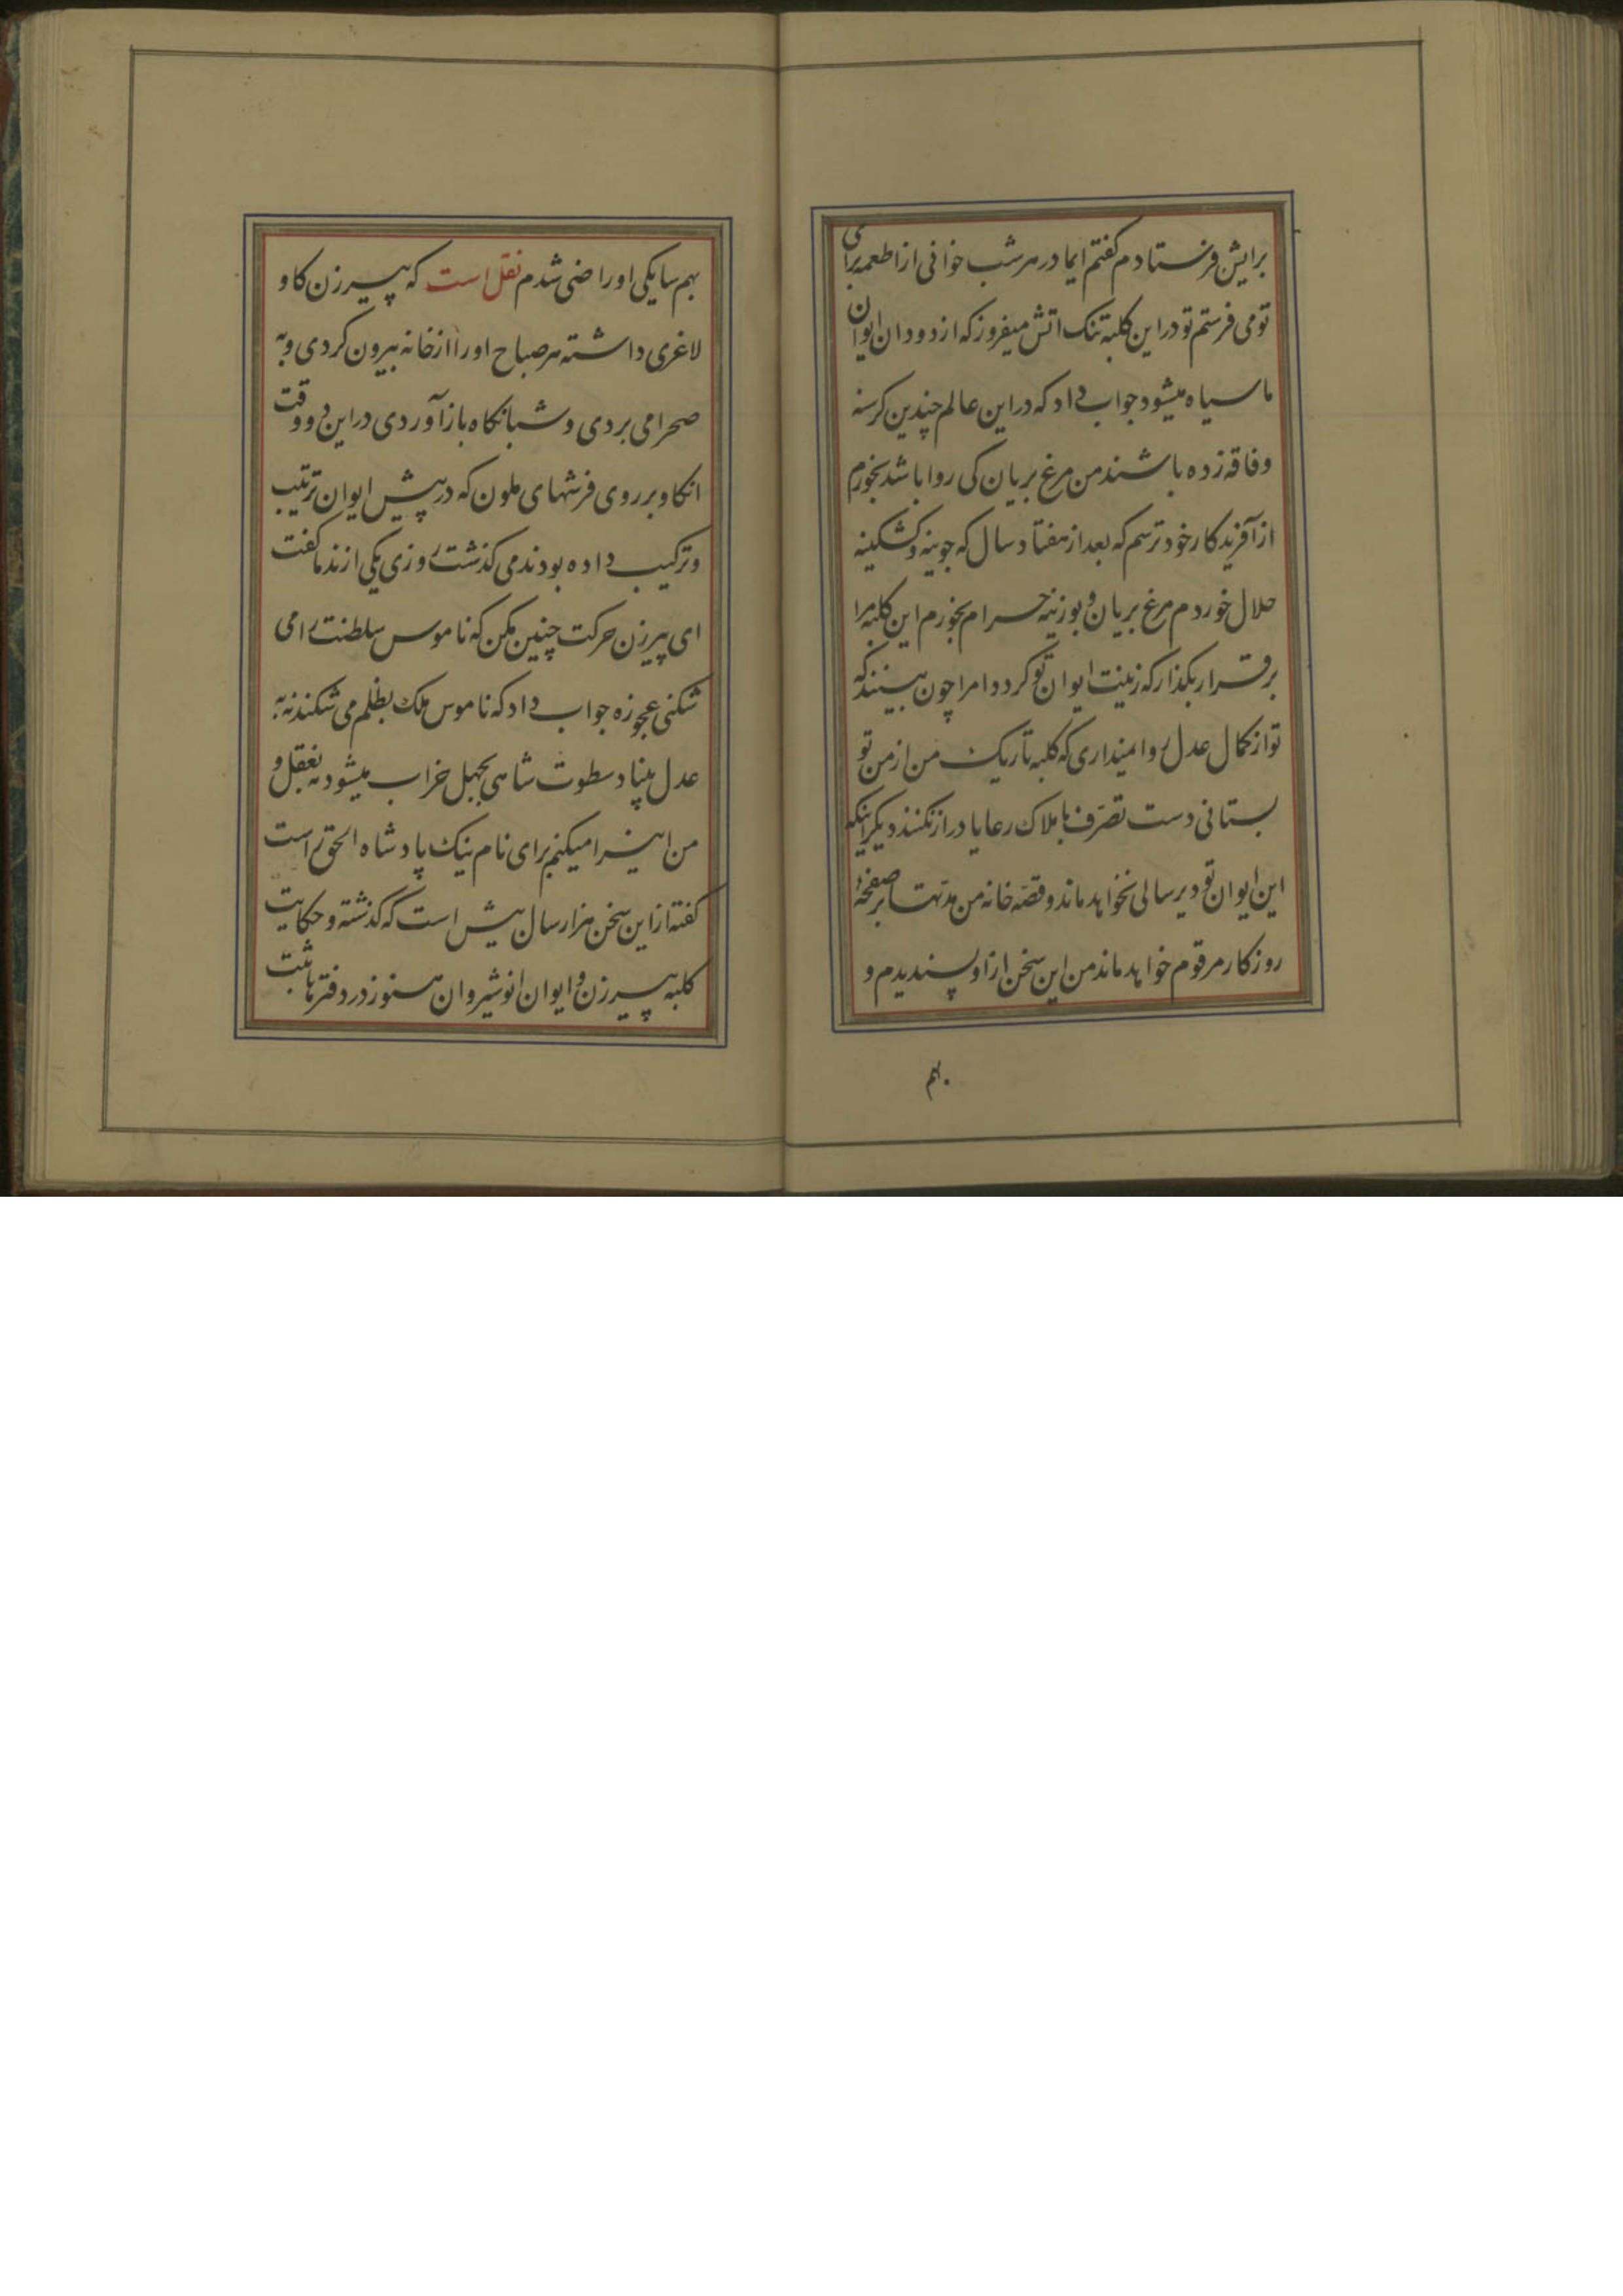 برایش فرستادم گفتم ایمادر هر شب خوانی از اطعمه برای
تو می فرستم تو در این کلبه تنک اتش میفروز که از دود ان ایوان
ما سیاه میشود جواب داد که در این عالم چندین کرسنه
و فاقه زده باشند من مرغ بریان کی روا باشد بخورم
از آفریدکار خود ترسم که بعد از هفتاد سال که جوینه و کشکینه
حلال خوردم مرغ بریان و بوزینه حرام بخورم این کلبه مرا
برقرار بکذار که زینت ایوان تو کردد امرا چون ببینند که
تو از کمال عدل روا نمیداری که کلبه تاریک من از من تو
بستانی دست تصرف باملاک رعایا دراز نکنند دیکر اینکه
این ایوان تو دیر سالی نخواهد ماند و قصه خانه من مدتها بر صفحهٔ
روزکار مرقوم خواهد ماند من این سخن ازاو پسندیدم و
بهم
بهم سایکی او راضی شدم نقل است که پیرزن کاو
لاغری داشته هر صباح او را از خانه بیرون کردی و به
صحرا می بردی و شبانکاه باز آوردی در این دو وقت
انکاو بر روی فرشهای ملون که در پیش ایوان ترتیب
و ترکیب داده بودند می کذشت روزی یکی از ندما کفت
ای پیرزن حرکت چنین مکن که ناموس سلطنت را می
شکنی عجوزه جواب داد که ناموس ملک بظلم می شکند نه به
عدل بنیاد سطوت شاهی بجهل خراب میشود نه بعقل و
من اینرا میکنم برای نام نیک پادشاه الحق راست
کفته از این سخن هزار سال بیش است که کذشته و حکایت
کلبه پیرزن و ایوان انوشیروان هنوز در دفترها ثبت